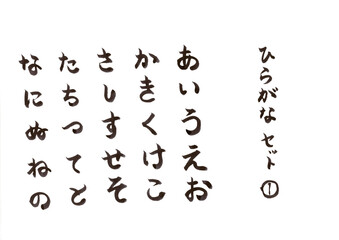 ひらがな セット①
あいうえお
かきくけこ
さしすせそ
たちつてと
なにぬねの